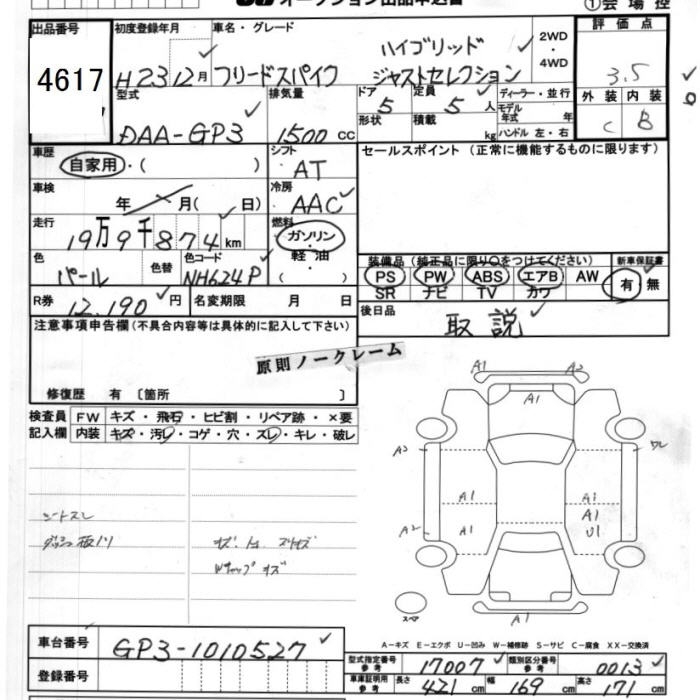 オークション出品申込書
①会場控
出品番号 初度登録年月 車名・グレード 2WD・4WD 評価点
4617 H23 12月 フリードスパイク ハイブリッド ジャストセレクション 3.5
型式 排気量 ドア 定員 ディーラー・並行 外装 内装
DAA-GP3 1500 CC 5 5人 モデル年式 年 C B
形状 積載 kg ハンドル 左・右
車歴 シフト セールスポイント (正常に機能するものに限ります)
自家用・( ) AT
車検 冷房
年 月( 日) AAC
走行 燃料
19万9千874km ガソリン・軽油・( )
色 色替 色コード 装備品(純正品に限り○をつけてください) 新車保証書
パール NH624P PS PW ABS エアB AW 有・無
SR ナビ TV カワ
R券 12,190円 名変期限 月 日 後日品
取説
注意事項申告欄(不具合内容等は具体的に記入して下さい)
原則ノークレーム
修復歴 有 〔箇所 〕
検査員 FW キズ・飛石・ヒビ割・リペア跡・×要
記入欄 内装 キズ・汚レ・コゲ・穴・スレ・キレ・破レ
A1 A2
A1
A2
A1 A1
A1
A2 A1 U1
シートスレ
A1
スペア
A-キズ E-エクボ U-凹み W-補修跡 S-サビ C-腐食 XX-交換済
車台番号 GP3-1010527
登録番号
型式指定番号 参考 17007 類別区分番号 参考 0013
車庫証明用 参考 長さ 421 cm 幅 169 cm 高さ 171 cm